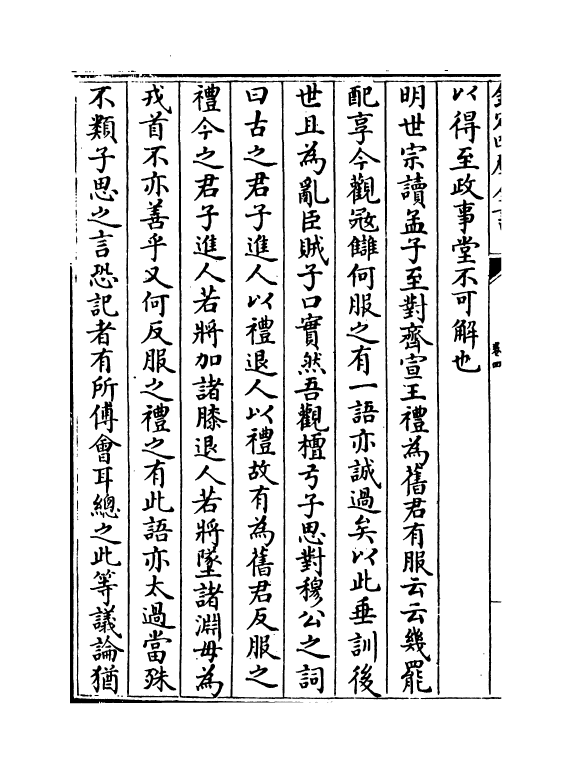 欽定四庫全書
卷四
以得至政事堂不可解也
明世宗讀孟子至對齊宣王禮為舊君有服云云幾罷
配享今觀冦讎何服之有一語亦誠過矣以此垂訓後
世且為亂臣賊子口實然吾觀檀弓子思對穆公之詞
曰古之君子進人以禮退人以禮故有為舊君反服之
禮今之君子進人若將加諸膝退人若將墜諸淵毋為
戎首不亦善乎又何反服之禮之有此語亦太過當殊
不類子思之言恐記者有所傅會耳總之此等議論猶